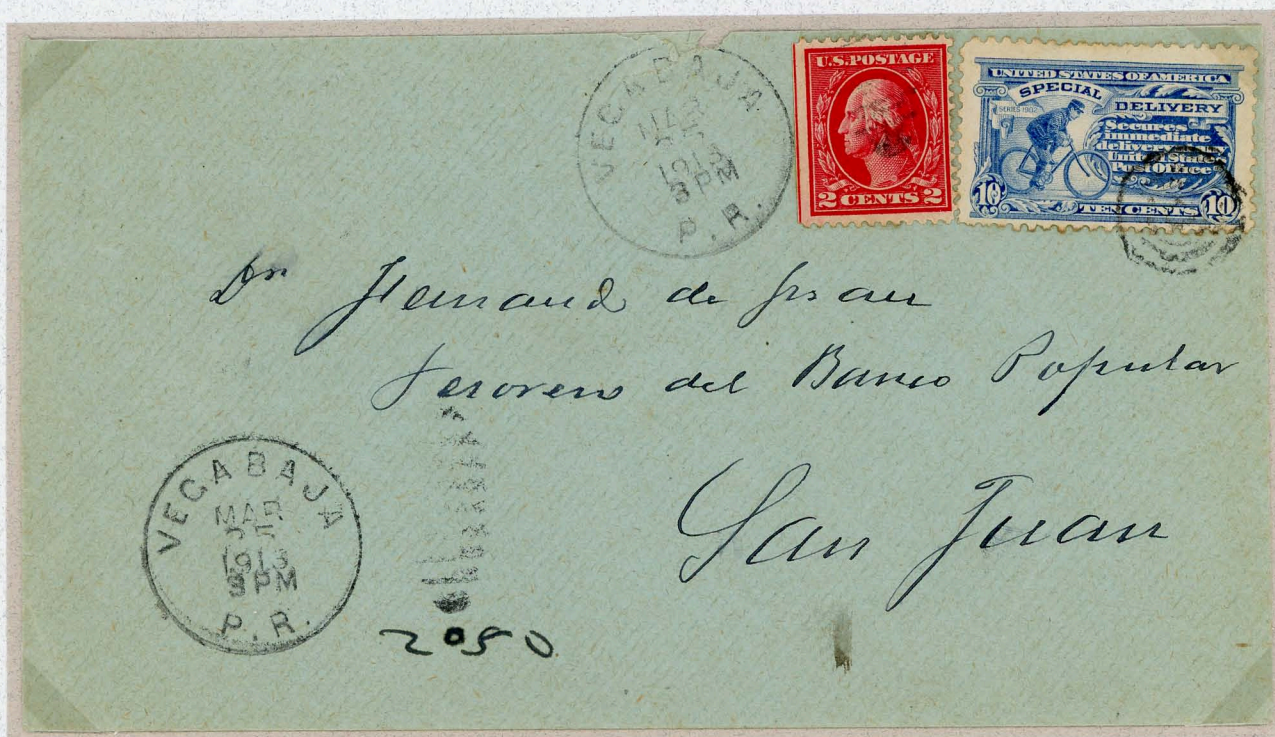 VEGA BAJA
MAR
25
1913
3 PM
P. R.
U.S. POSTAGE
2 CENTS 2
UNITED STATES OF AMERICA
SPECIAL DELIVERY
SERIES 1902
Secures
immediate
delivery
United States
Post Office
10 TEN CENTS 10
Dn de
Tesorero del Banco Popular
San Juan
VEGA BAJA
MAR
25
1913
3 PM
P. R.
2050